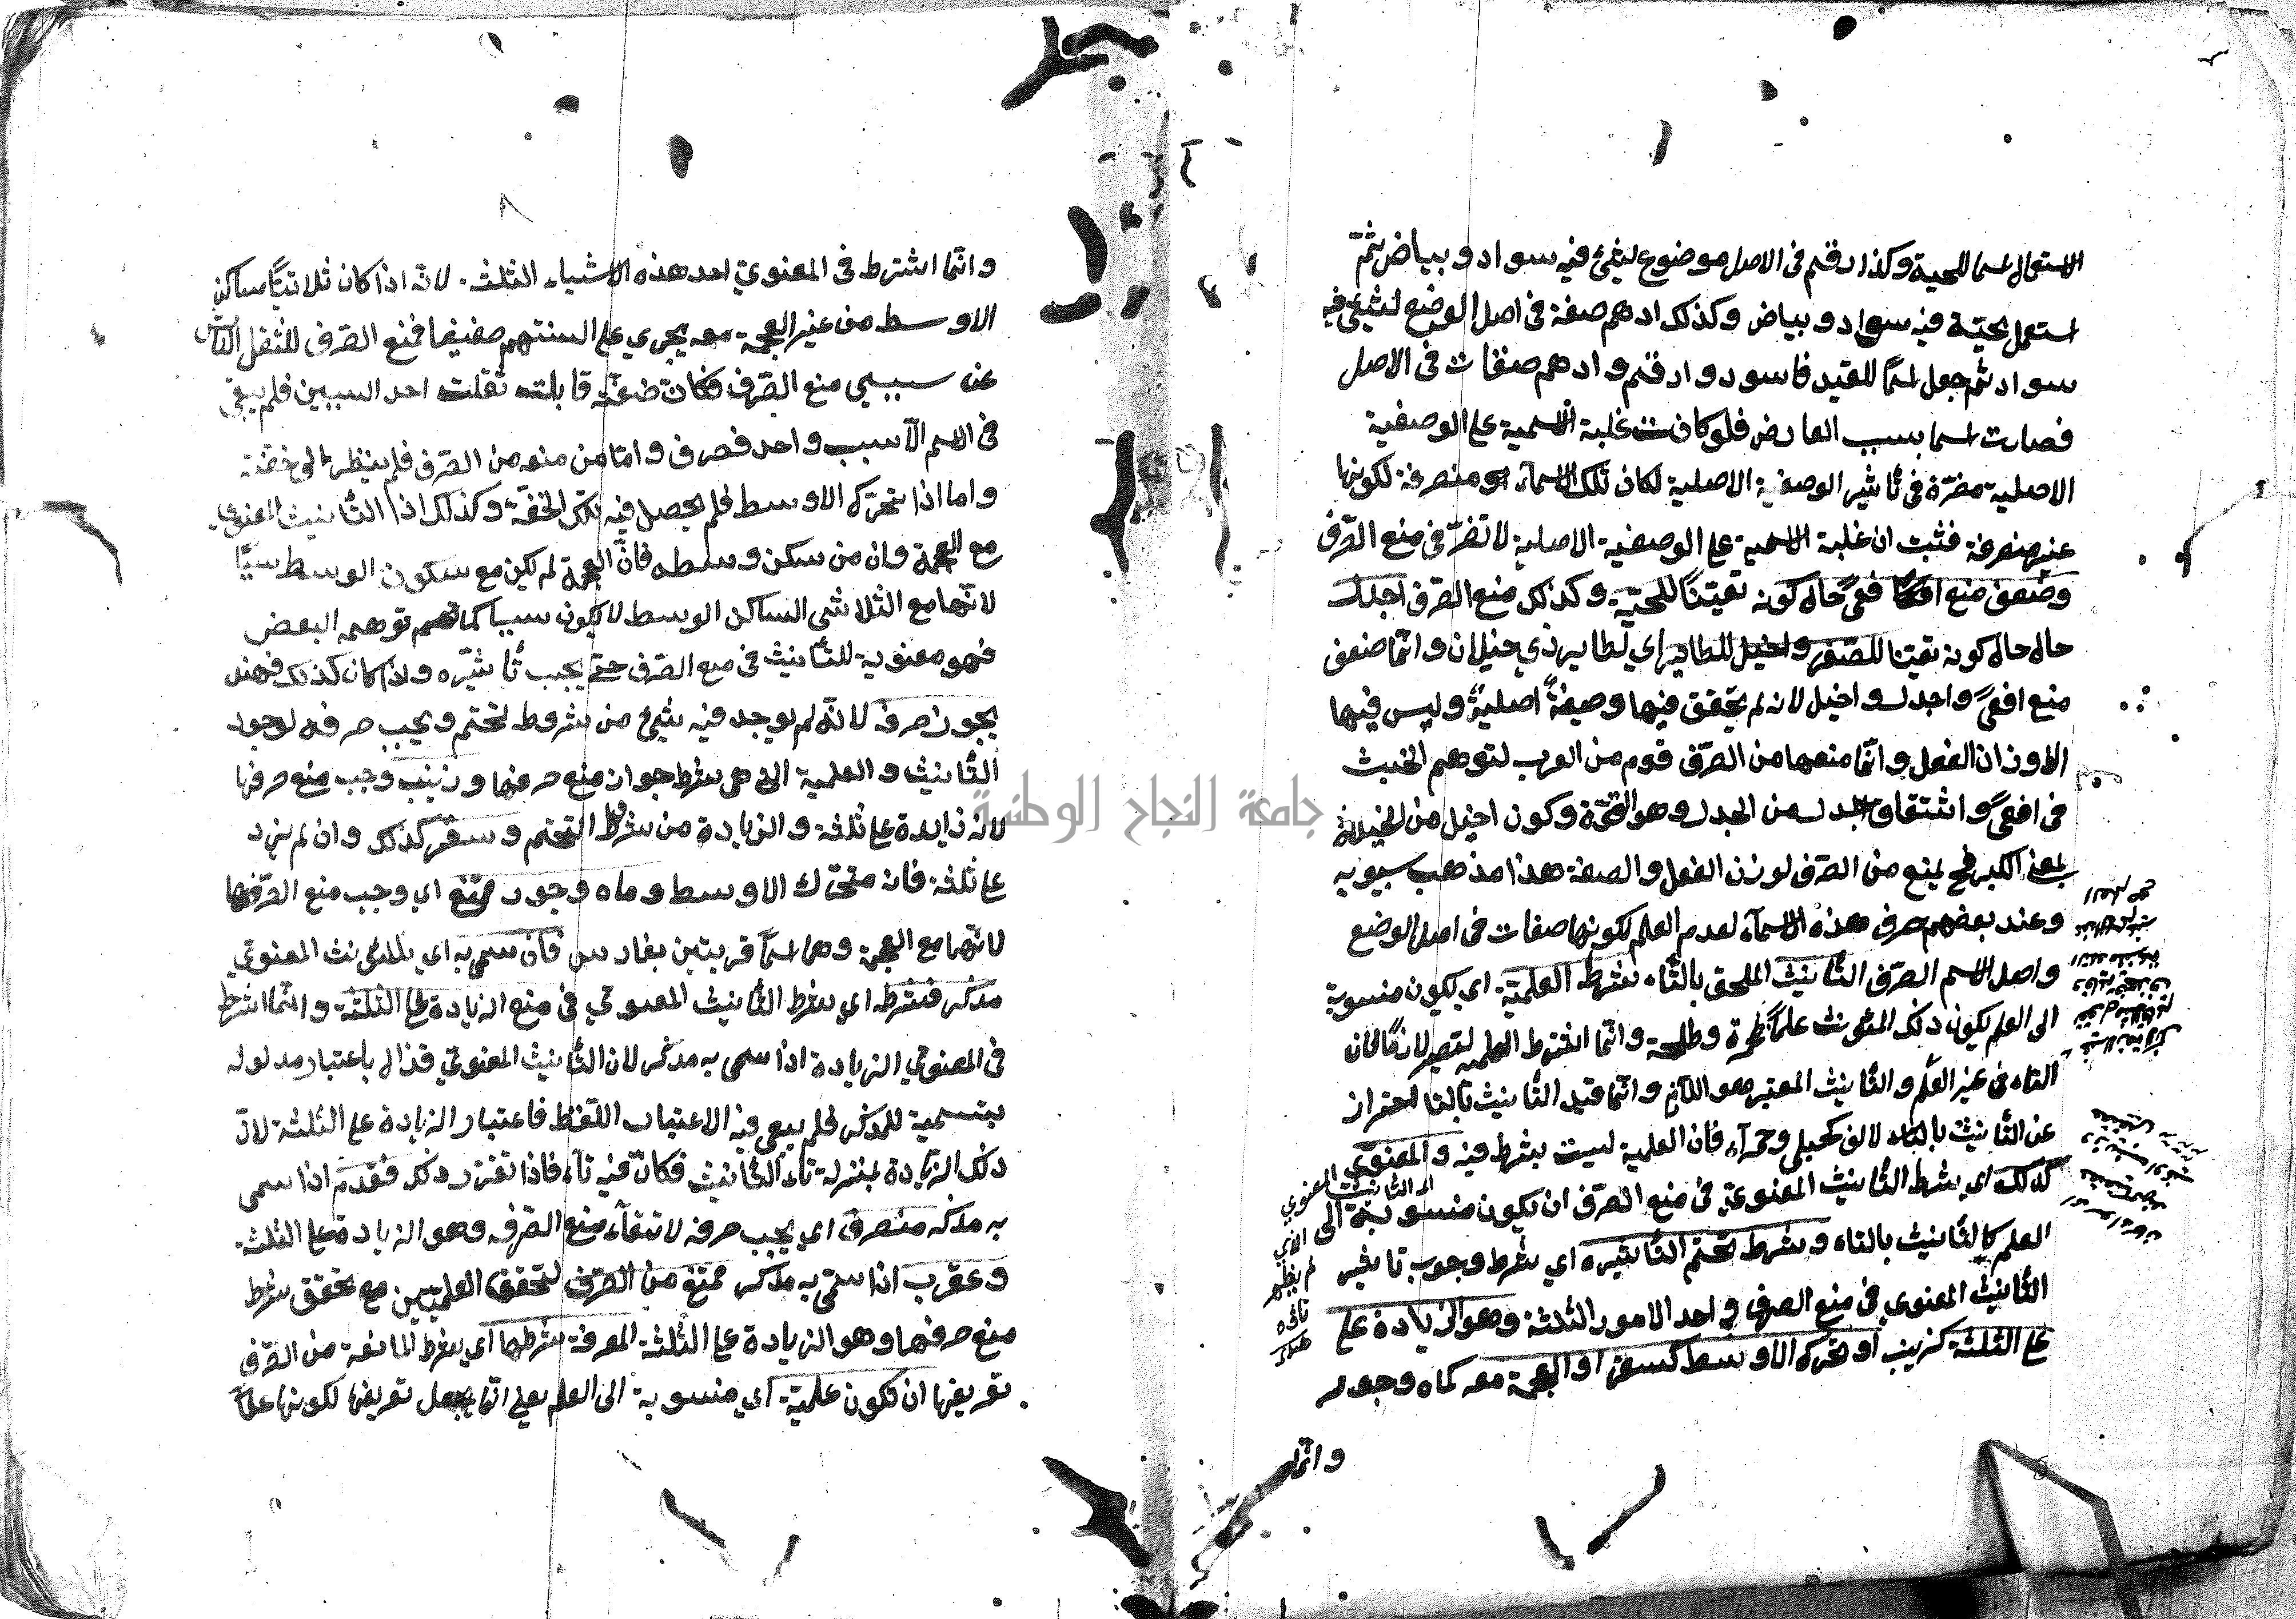 الاستعمال اسما للحية وكذا ارقم فى الاصل موضوع لشئ فيه سواد وبياض ثم
استعمل لحية فيه سواد وبياض وكذلك ادهم صفة فى اصل الوضع لشئ فيه
سواد ثم جعل اسمًا للقيد فاسود وارقم وادهم صفات فى الاصل
فصارت اسما بسبب العارض فلو كانت غلبة الاسمية على الوصفية
الاصلية مضرّة فى تأثير الوصفية الاصلية لكان تلك الاسمآء منصرفة لكونها
غير منصرفة فثبت ان غلبة الاسمية على الوصفية الاصلية لا تضرّ فى منع الصّرف
وضعف منع افعًى فى حال كونه للحيّة وكذلك منع الصّرف اجدل
حال كونه للصّقر واخيل للطاير اى لطاير ذي خيلان وانّما ضعف
منع افعًى واجدل واخيل لانه لم يتحقق فيها وصفيةٌ اصليةٌ وليس فيها
الا وزان الفعل وانّما منعها من الصّرف قوم من العرب لتوهم الخبث
فى افعًى واشتقاق اجدل من الجدل وهو القوّة وكون اخيل من الخيلة
بمعنى الكبر فح يمنع من الصّرف لوزن الفعل والصفة هذا مذهب سيبويه
وعند بعضهم صرف هذه الاسمآء لعدم العلم لكونها صفات فى اصل الوضع
واصل الاسم الصّرف التّأنيث الملحق بالتّاء شرطه العلميّة اي يكون منسوبة
الى العلم يكون ذلك المؤنث علمًا كحمزة وطلحة وانّما اشترط العلمية ليصير لازمًا لان
التاء فى غير العلم والتّأنيث المعتبر هو اللازم وانّما قيد التّأنيث بالتا احتراز
عن التّأنيث بالالف كحبلى وحمرآء فان العلمية ليست بشرط فيه والمعنويّ
كذلك اي شرط التّأنيث المعنويّ فى منع الصّرف ان يكون منسوبة الى
العلم كالتّأنيث بالتاء وشرط تحتم التّأثيره اي شرط وجوب تاثير
التّأنيث المعنوي فى منع الصرف احد الامور الثلثة وهو الزيادة على
على الثلثة كزينب او تحرك الاوسط كسقر او العجمة معه كماه وجور
التانيث المعنوي
الذي
لم يظهر
تاؤه
وانّما
وانّما اشترط فى المعنويّ احد هذه الاشياء الثلث لانه اذا كان ثلاثيًّا ساكن
الاوسط من غير العجمة معه يجري على السنتهم خفيفا فمنع الصّرف للثقل
عن سببي منع الصّرف فكان خفّته قابلت ثقلت احد السببين فلم يبقى
فى الاسم الّا سبب واحد فصرف وامّا من منعه من الصّرف فلم ينظر الى خفّته
واما اذا تحرّك الاوسط فلم يحصل فيه تلك الخفّة وكذلك اذا التّأنيث المعنوي
مع العجمة وان من سكن وسطه فانّ العجمة لم يكن مع سكون الوسط سببًا
لانّها مع الثلاثى الساكن الوسط لا يكون سببا كما توهمه البعض
فهو معنوية للتّأنيث فى منع الصّرف حتى يجب تأثيره واذا كان كذلك فهند
يجوز صرفه لانّه لم يوجد فيه شئ من شروط تحتم ويجب صرفه لوجود
التّأنيث والعلمية التى هى شرط جواز منع صرفها وزينب وجب منع صرفها
لانه زايدة على ثلثة والزيادة من شرط التحتم وسقر كذلك وان لم يزد
على ثلثة فان متحرّك الاوسط وماه وجور ممتنع اي وجب منع الصّرفها
لانّهما مع العجمة وهما اسمآ قريتين بفارس فان سمى به اي بالمؤنث المعنويّ
مذكر فشرطه اي شرط التّأنيث المعنوي فى منع الزيادة على الثلثة وانّما اشرط
فى المعنوي الزيادة اذا سمى به مذكر لان التّأنيث المعنويّ قد زال باعتبار مدلوله
بتسمية للمذكر فلم يبقى فيه الا اعتبار اللّفظ فاعتبار الزيادة على الثلثة لانّ
ذلك الزيادة بمنزلة تاء التّأنيث فكانّ فيه تآء فاذا تقرر ذلك فقدم اذا سمى
به مذكر منصرف اي يجب صرفه لانتفآء منع الصّرف وهو الزيادة على الثلثة
وعقرب اذا سمّى به مذكر ممتنع من الصّرف لتحقق العلميّة مع تحقق شرط
منع صرفها وهو الزيادة على الثلثة المعرفة شرطها اي شرط المانعة من الصّرف
تعريفها ان تكون علميّة اي منسوبة الى العلم يعنى انّما يجعل تعريفها لكونها علمًا
جامعة النجاح الوطنية